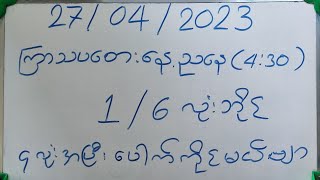 27/04/2023
ကြာသပတေးနေ့ညနေ(4:30)
1/6 လုံးဘိုင်
၄လုံးအမြီးပေါက်ကိုင်မယ်ဗျာ